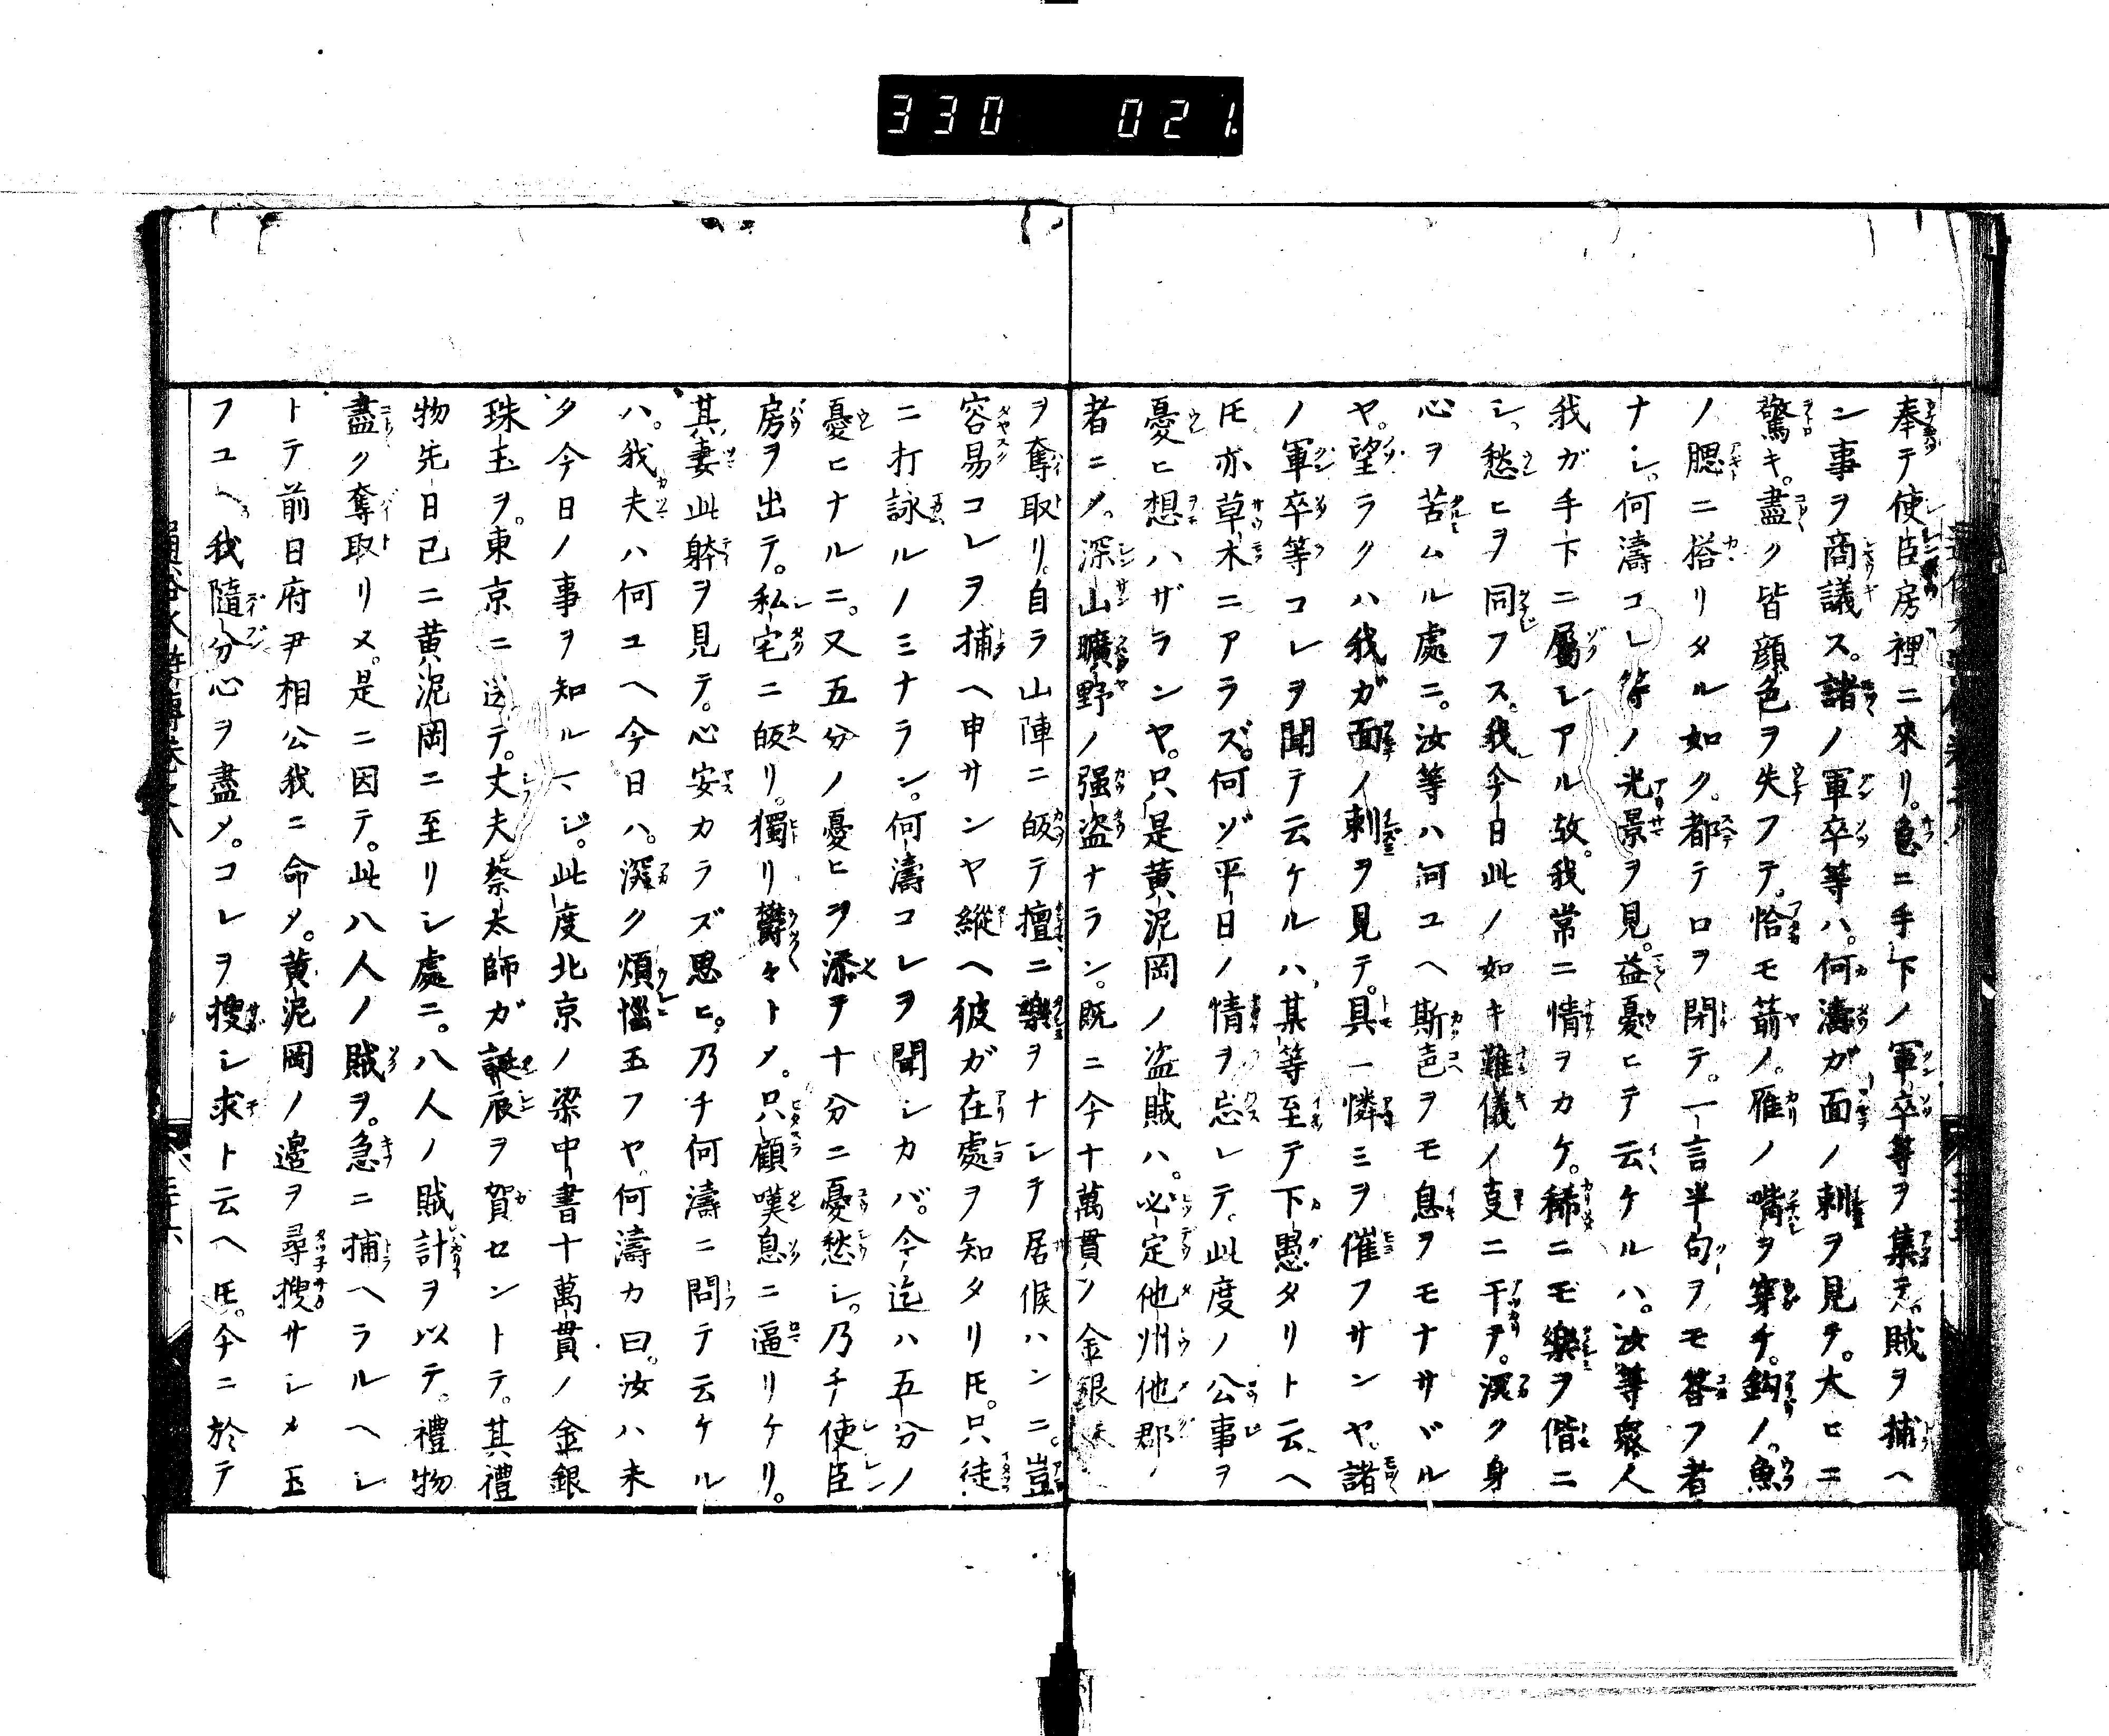 330 021.
奉テ使臣房裡ニ來リ。急ニ手下ノ軍卒等ヲ集テ。賊ヲ捕ヘ
ン事ヲ商議ス。諸ノ軍卒等ハ。何濤ガ面ノ刺ヲ見ヲ。大ヒニ
驚キ。盡ク皆顔色ヲ失フテ。恰モ箭ノ。雁ノ嘴ヲ穿チ。鈎ノ。魚
ノ腮ニ搭リタル如ク。都テロヲ閉テ。一言半句ヲモ答フ者
ナシ。何濤コレ等ノ光景ヲ見。益憂ヒテ云ケルハ。汝等衆人
我ガ手下ニ屬レアル故。我常ニ情ヲカケ。稀ニモ樂ヲ偕ニ
シ。愁ヒヲ同フス。我今日此ノ如キ難儀ノ支ニ干ヲ。深ク身
心ヲ苦ムル處ニ。汝等ハ何ユヘ斯皀ヲモ息ヲモナサヾル
ヤ。望ラクハ我ガ面ノ刺ヲ見テ。具一憐ミヲ催フサンヤ。諸
ノ軍卒等コレヲ聞テ云ケルハ。某等至テ下愚タリト云ヘ
𪜈亦草木ニアラズ。何ゾ平日ノ情ヲ忘レテ。此度ノ公事ヲ
憂ヒ想ハザランヤ。只是黄泥岡ノ盜賊ハ。必定他州他郡ノ
者ニメ。深山曠野ノ强盗ナラン。既ニ今十萬貫ノ金銀
ヲ奪取リ。自ラ山陣ニ皈テ擅ニ樂ヲナシテ居候ハンニ。豈
容易コレヲ捕ヘ申サンヤ縱ヘ彼ガ在處ヲ知タリ𪜈。只徒
ニ打詠ルノミナラン。何濤コレヲ聞シカバ。今迄ハ五分ノ
憂ヒナルニ。又五分ノ憂ヒヲ添テ十分ニ憂愁シ。乃チ使臣
房ヲ出テ。私宅ニ皈リ。獨リ欝々トメ。只顧嘆息ニ逼リケリ。
其妻此躰ヲ見テ。心安カラズ思ヒ。乃チ何濤ニ問テ云ケル
ハ。我夫ハ何ユヘ今日ハ。深ク煩惱玉フヤ。何濤カ曰。汝ハ未
タ今日ノ事ヲ知ルマジ。此度北京ノ梁中書十萬貫ノ金銀
珠玉ヲ。東京ニ送テ。丈夫蔡太師ガ誕辰ヲ賀セントテ。其禮
物先日已ニ黄泥岡ニ至リシ處ニ。八人ノ賊計ヲ以テ。禮物
盡ク奪取リヌ。是ニ因テ。此八人ノ賊ヲ。急ニ捕ヘラルヘシ
トテ前日府尹相公我ニ命メ。黄泥岡ノ邉ヲ尋搜サシメ玉
フユヘ。我隨分心ヲ盡メ。コレヲ搜シ求ト云ヘ𪜈。今ニ於テ